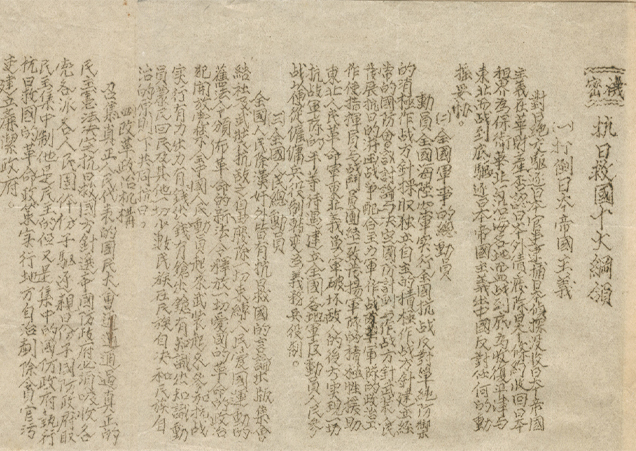 機密
抗日救國十大綱領
(一)打倒日本帝國主義
對日絕交驅逐日本官吏逮捕日本偵探沒收日本帝國
主義在華財產否認日本外債廢除日本條約收回日本
租界為保衛華北和沿海各地而血戰到底為收復平津與
東北而戰到底驅逐日本帝國主義出中國反對任何的動
搖妥協
(二)全國軍事的總動員
動員全國海陸空軍實行全國抗战反對單純防禦
的消極作战方針採取独立自主的積極作战方針建立經
常的國防會議討論與決定國防計劃與作战方針武裝人民
發展抗日的游击战爭配合主力軍作战改革軍隊的政治工
作使指揮員與战鬥員團結一致發揚軍隊的積極性援助
東北人民革命軍東北義勇軍破坏敌人的後方實現一切
抗战軍隊的平等待遇建立全國各地軍区動員人民參
战以便從僱傭兵役制轉變為義務兵役制。
(三)全國人民總動員
全國人民除漢奸外皆有抗日救國的言論出版集會
結社及武裝抗敌之自由廢除一切束縛人民愛國運動的
舊法令頒佈革命的新法令釋放一切愛國的革命的政治
犯開放黨禁全中國人民動員起來武裝起來參加抗战
實行有力出力有錢出錢有槍出槍有知識出知識動
員蒙民回民及其他一切小數民族在民族自決和民族自
治的原則下共同抗日。
四改革政治机構
召集真正人民代表的國民大會通過真正的
民主憲法決定抗日救國方針選舉國防政府必須吸收各
党各派各人民團体份子驅逐親日份子國防政府取
民主集中制他是民主的但又是集中的國防政府執行
抗日救國的革命政策实行地方自治剷除貪官污
吏建立廉潔政府。